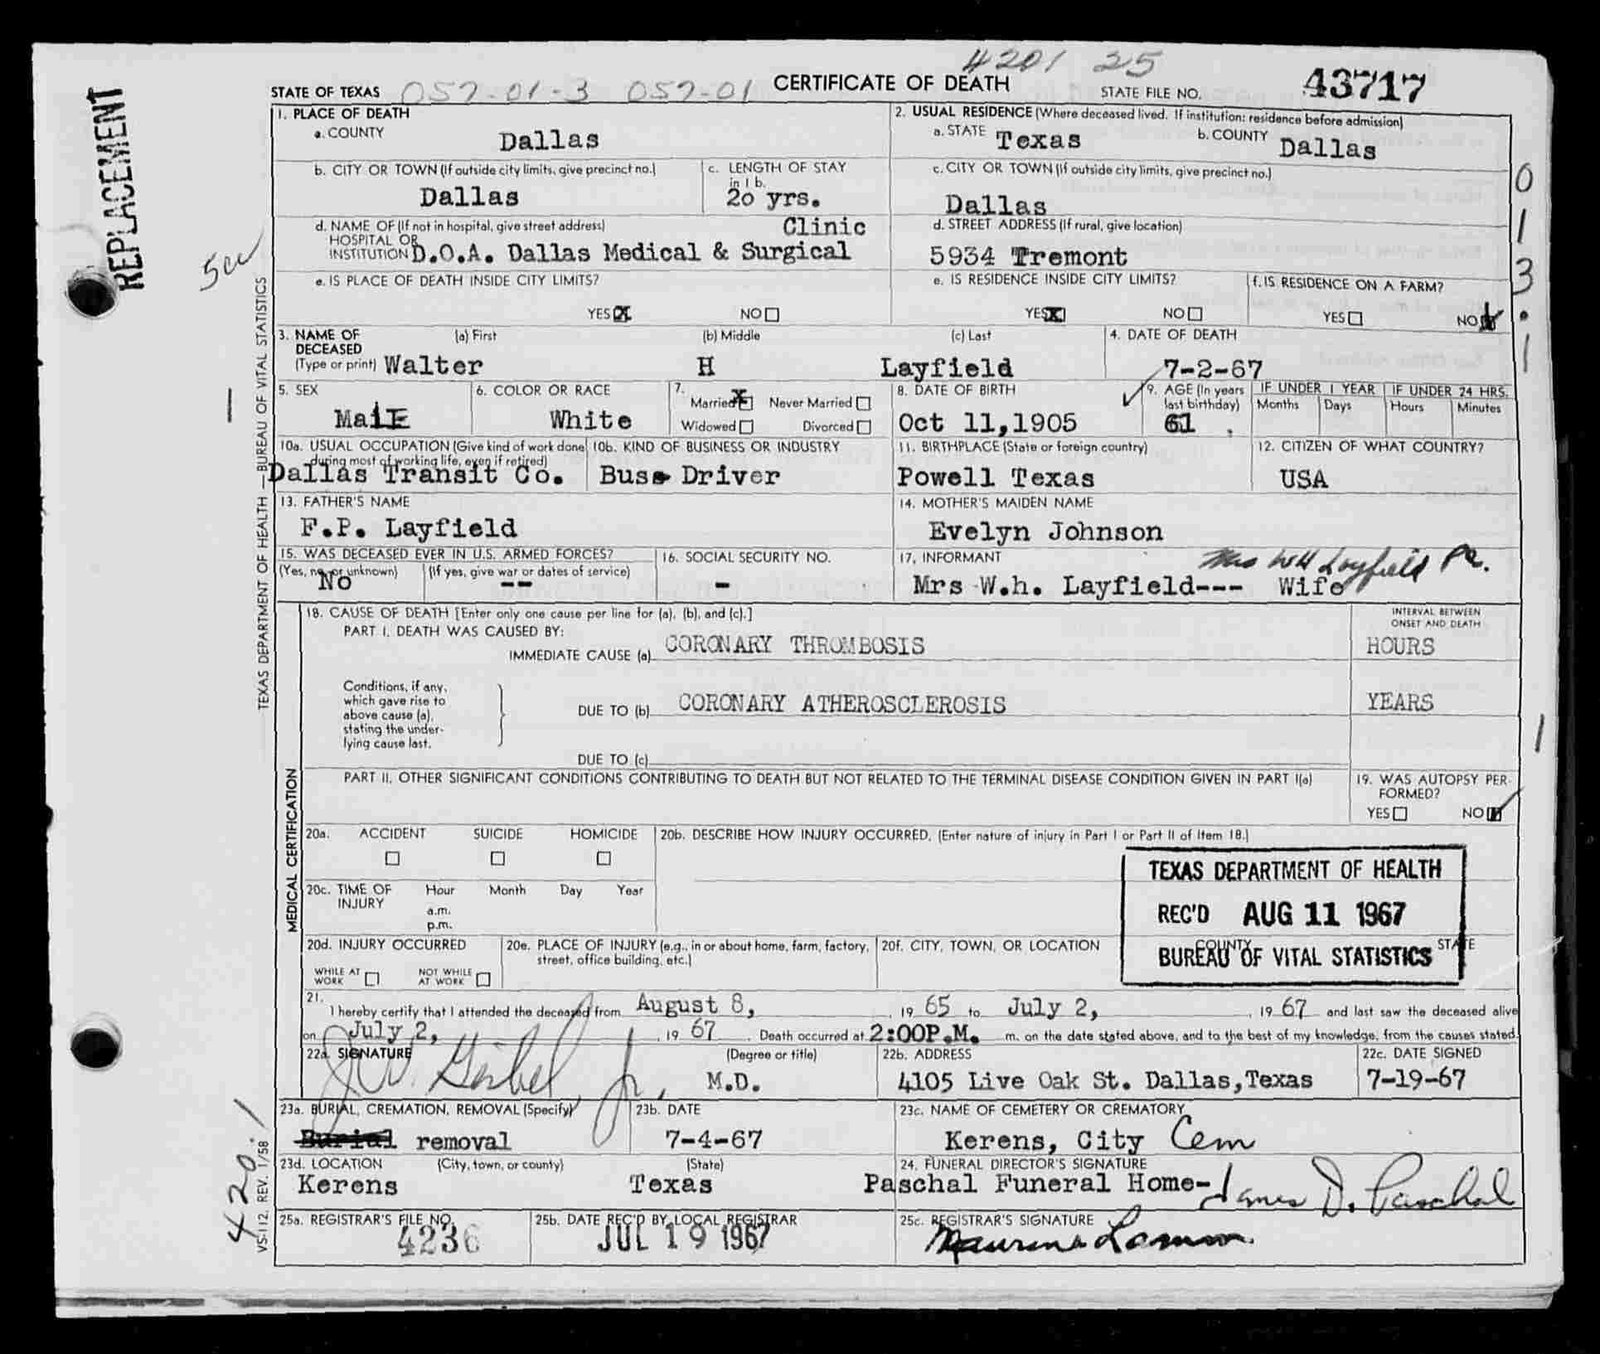 4201 25
STATE OF TEXAS 057-01-3 057-01 CERTIFICATE OF DEATH STATE FILE NO. 43717
REPLACEMENT
1. PLACE OF DEATH
a. COUNTY Dallas
2. USUAL RESIDENCE (Where deceased lived. If institution: residence before admission)
a. STATE Texas b. COUNTY Dallas
b. CITY OR TOWN (If outside city limits, give precinct no.) Dallas
c. LENGTH OF STAY in 1 b. 20 yrs.
c. CITY OR TOWN (If outside city limits, give precinct no.) Dallas
d. NAME OF (If not in hospital, give street address) Clinic
HOSPITAL OR
INSTITUTION D.O.A. Dallas Medical & Surgical
d. STREET ADDRESS (If rural, give location)
5934 Tremont
e. IS PLACE OF DEATH INSIDE CITY LIMITS?
YES X NO
e. IS RESIDENCE INSIDE CITY LIMITS?
YES X NO
f. IS RESIDENCE ON A FARM?
YES NO X
013.1
3. NAME OF DECEASED (Type or print)
(a) First (b) Middle (c) Last
Walter H Layfield
4. DATE OF DEATH
7-2-67
5. SEX
MalE
6. COLOR OR RACE
White
7. Married X Never Married
Widowed Divorced
8. DATE OF BIRTH
Oct 11,1905
9. AGE (In years last birthday)
61
IF UNDER 1 YEAR IF UNDER 24 HRS.
Months Days Hours Minutes
10a. USUAL OCCUPATION (Give kind of work done during most of working life, even if retired)
Dallas Transit Co.
10b. KIND OF BUSINESS OR INDUSTRY
Bus Driver
11. BIRTHPLACE (State or foreign country)
Powell Texas
12. CITIZEN OF WHAT COUNTRY?
USA
13. FATHER'S NAME
F.P. Layfield
14. MOTHER'S MAIDEN NAME
Evelyn Johnson
15. WAS DECEASED EVER IN U.S. ARMED FORCES?
(Yes, no, or unknown) (If yes, give war or dates of service)
No --
16. SOCIAL SECURITY NO.
-
17. INFORMANT Mrs WH Layfield
Mrs W.h. Layfield--- Wife
18. CAUSE OF DEATH [Enter only one cause per line for (a), (b), and (c).]
INTERVAL BETWEEN ONSET AND DEATH
PART I. DEATH WAS CAUSED BY:
IMMEDIATE CAUSE (a) CORONARY THROMBOSIS HOURS
Conditions, if any,
which gave rise to
above cause (a),
stating the under-
lying cause last.
DUE TO (b) CORONARY ATHEROSCLEROSIS YEARS
DUE TO (c)
PART II. OTHER SIGNIFICANT CONDITIONS CONTRIBUTING TO DEATH BUT NOT RELATED TO THE TERMINAL DISEASE CONDITION GIVEN IN PART I(a)
19. WAS AUTOPSY PERFORMED?
YES NO
20a. ACCIDENT SUICIDE HOMICIDE
20b. DESCRIBE HOW INJURY OCCURRED. (Enter nature of injury in Part I or Part II of Item 18.)
20c. TIME OF INJURY
Hour Month Day Year
a.m.
p.m.
TEXAS DEPARTMENT OF HEALTH
REC'D AUG 11 1967
BUREAU OF VITAL STATISTICS
20d. INJURY OCCURRED
WHILE AT WORK NOT WHILE AT WORK
20e. PLACE OF INJURY (e.g., in or about home, farm, factory, street, office building, etc.)
20f. CITY, TOWN, OR LOCATION COUNTY STATE
21. I hereby certify that I attended the deceased from August 8, , 19 65 to July 2, , 19 67 and last saw the deceased alive
on July 2, , 19 67 . Death occurred at 2:00P.M. m. on the date stated above, and to the best of my knowledge, from the causes stated.
22a. SIGNATURE (Degree or title)
M.D.
22b. ADDRESS
4105 Live Oak St. Dallas,Texas
22c. DATE SIGNED
7-19-67
23a. BURIAL, CREMATION, REMOVAL (Specify)
Burial removal
23b. DATE
7-4-67
23c. NAME OF CEMETERY OR CREMATORY
Kerens, City Cem
23d. LOCATION (City, town, or county) (State)
Kerens Texas
24. FUNERAL DIRECTOR'S SIGNATURE
Paschal Funeral Home- James D. Paschal
25a. REGISTRAR'S FILE NO.
4236
25b. DATE REC'D BY LOCAL REGISTRAR
JUL 19 1967
25c. REGISTRAR'S SIGNATURE
TEXAS DEPARTMENT OF HEALTH — BUREAU OF VITAL STATISTICS
MEDICAL CERTIFICATION
VS-112. REV. 1/58
420.1